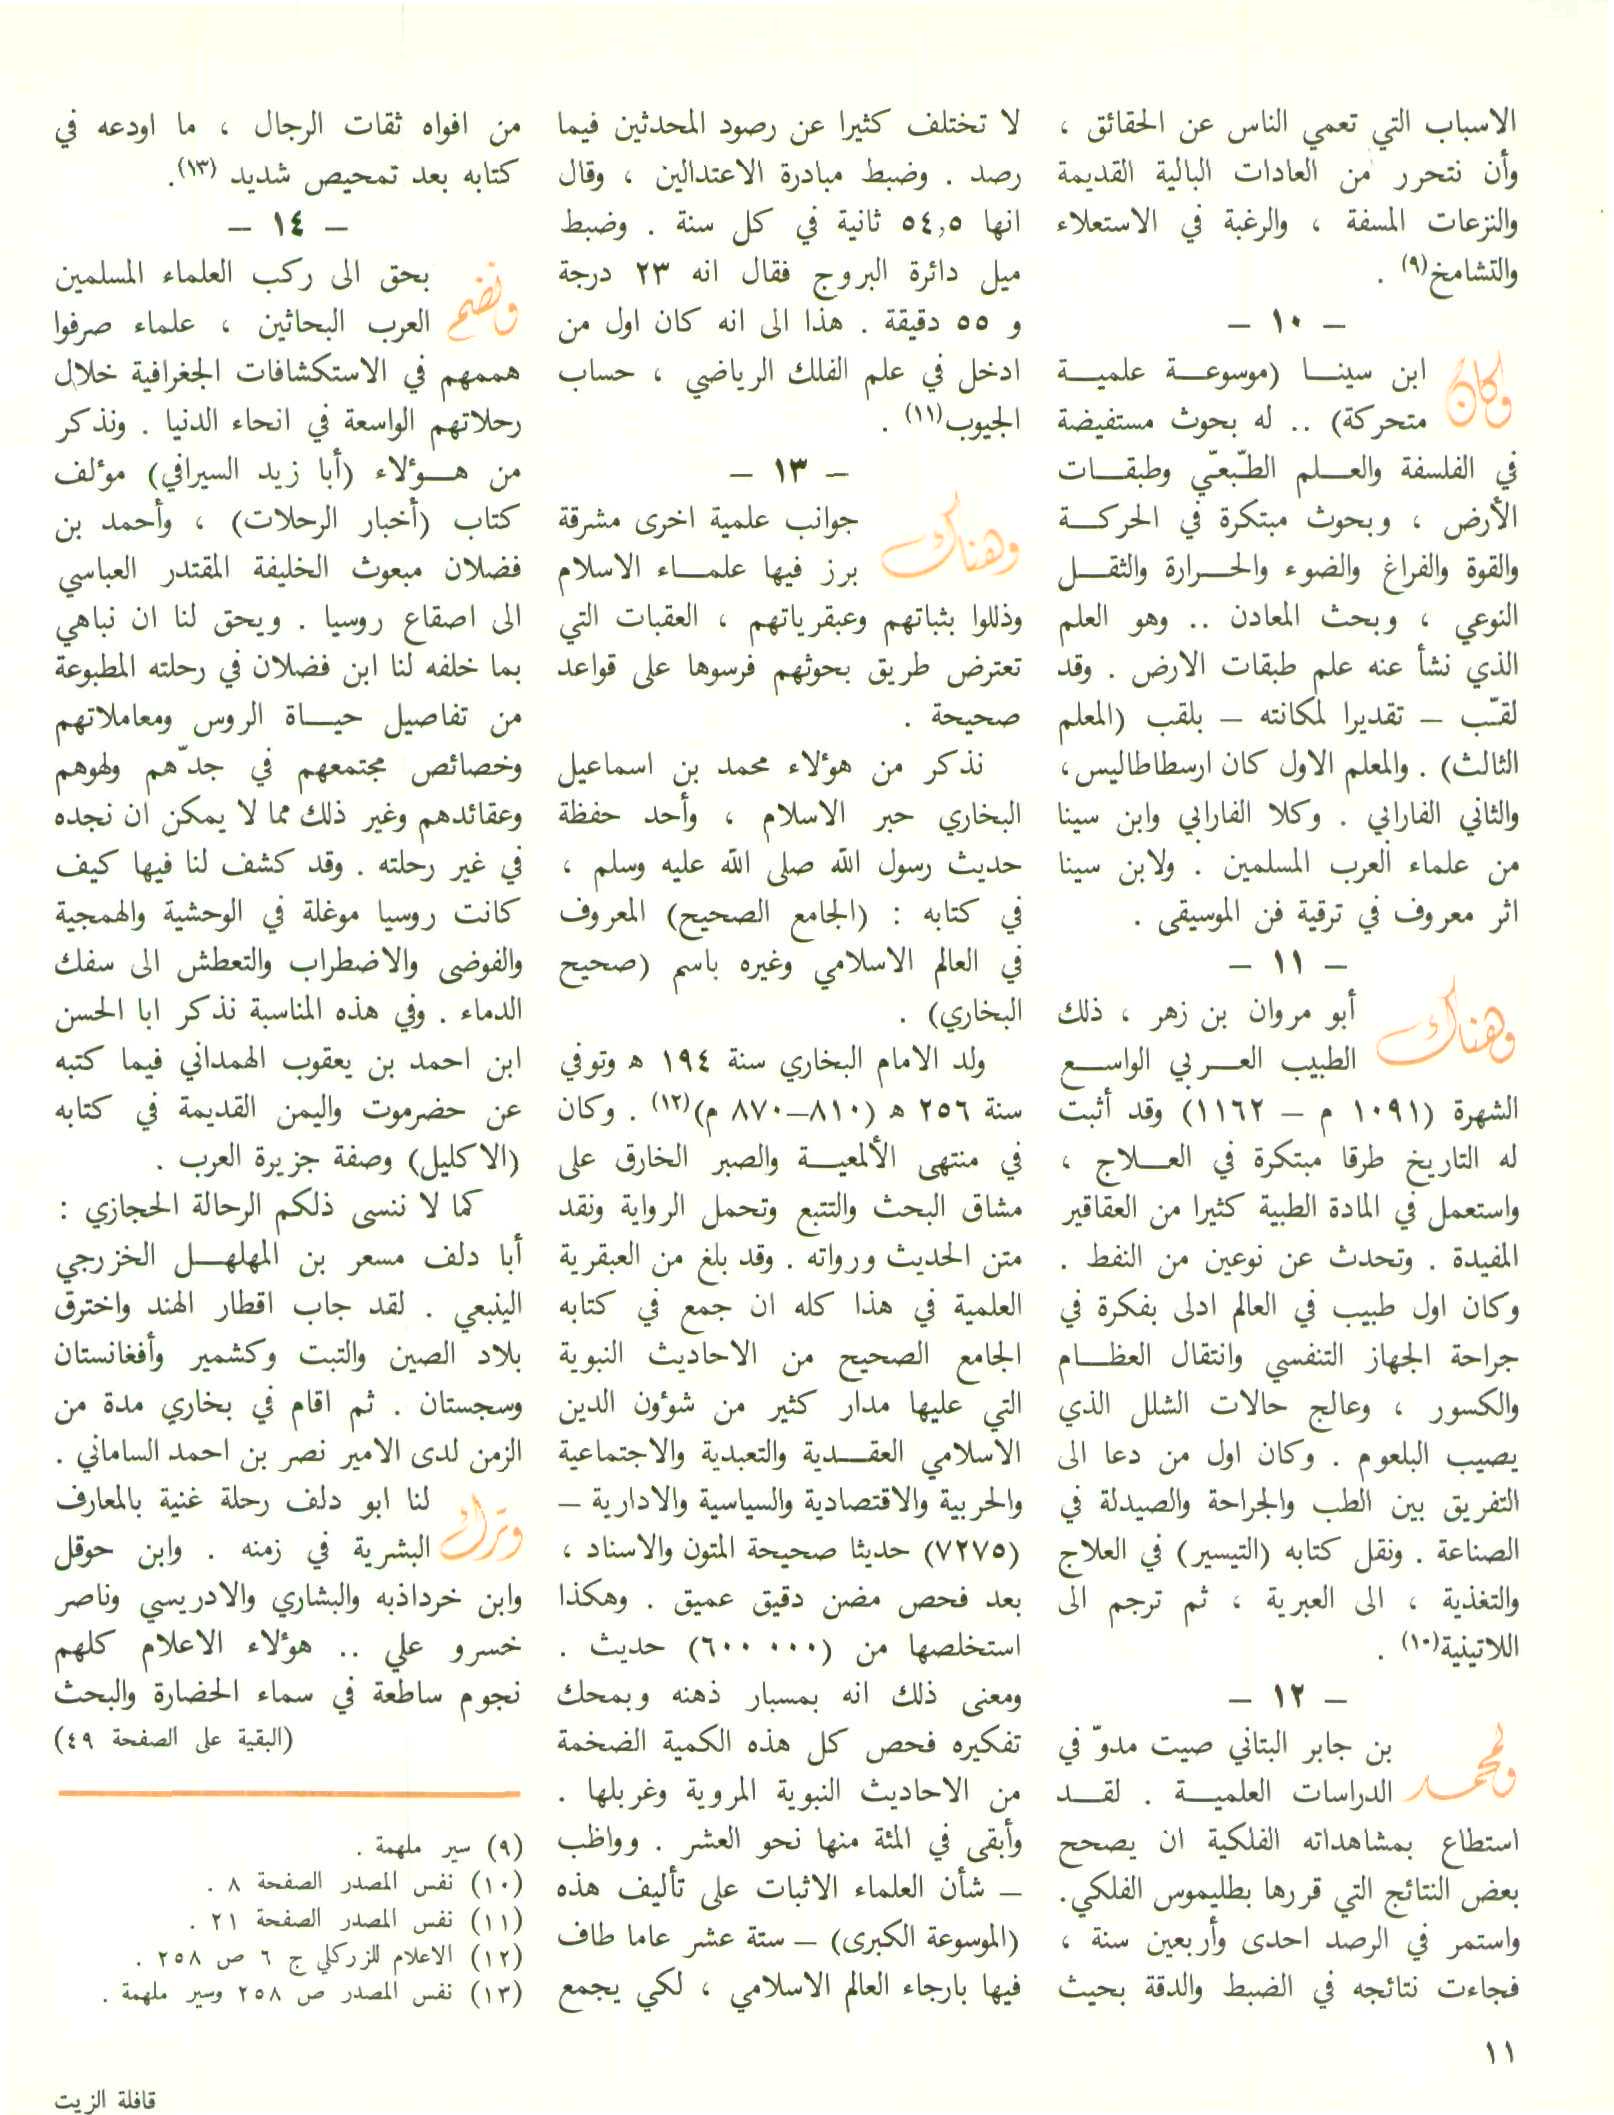 الاسباب التي تعمي الناس عن الحقائق ،
وأن نتحرر من العادات البالية القديمة
والنزعات المسفة ، والرغبة في الاستعلاء
والتشامخ(٩) .
— ١٠ —
وكان ابن سينا (موسوعة علمية
متحركة) .. له بحوث مستفيضة
في الفلسفة والعلم الطّبعيّ وطبقات
الأرض ، وبحوث مبتكرة في الحركة
والقوة والفراغ والضوء والحرارة والثقل
النوعي ، وبحث المعادن .. وهو العلم
الذي نشأ عنه علم طبقات الارض . وقد
لقّب — تقديرا لمكانته — بلقب (المعلم
الثالث) . والمعلم الاول كان ارسطاطاليس،
والثاني الفارابي . وكلا الفارابي وابن سينا
من علماء العرب المسلمين . ولابن سينا
اثر معروف في ترقية فن الموسيقى .
— ١١ —
وهناك أبو مروان بن زهر ، ذلك
الطبيب العربي الواسع
الشهرة (١٠٩١ م — ١١٦٢) وقد أثبت
له التاريخ طرقا مبتكرة في العلاج ،
واستعمل في المادة الطبية كثيرا من العقاقير
المفيدة . وتحدث عن نوعين من النفط .
وكان اول طبيب في العالم ادلى بفكرة في
جراحة الجهاز التنفسي وانتقال العظام
والكسور ، وعالج حالات الشلل الذي
يصيب البلعوم . وكان اول من دعا الى
التفريق بين الطب والجراحة والصيدلة في
الصناعة . ونقل كتابه (التيسير) في العلاج
والتغذية ، الى العبرية ، ثم ترجم الى
اللاتينية(١٠) .
— ١٢ —
ولمحمد بن جابر البتاني صيت مدوّ في
الدراسات العلمية . لقد
استطاع بمشاهداته الفلكية ان يصحح
بعض النتائج التي قررها بطليموس الفلكي.
واستمر في الرصد احدى وأربعين سنة ،
فجاءت نتائجه في الضبط والدقة بحيث
لا تختلف كثيرا عن رصود المحدثين فيما
رصد . وضبط مبادرة الاعتدالين ، وقال
انها ٥٤,٥ ثانية في كل سنة . وضبط
ميل دائرة البروج فقال انه ٢٣ درجة
و ٥٥ دقيقة . هذا الى انه كان اول من
ادخل في علم الفلك الرياضي ، حساب
الجيوب(١١) .
— ١٣ —
وهناك جوانب علمية اخرى مشرقة
برز فيها علماء الاسلام
وذللوا بثباتهم وعبقرياتهم ، العقبات التي
تعترض طريق بحوثهم فرسوها على قواعد
صحيحة .
نذكر من هؤلاء محمد بن اسماعيل
البخاري حبر الاسلام ، وأحد حفظة
حديث رسول الله صلى الله عليه وسلم ،
في كتابه : (الجامع الصحيح) المعروف
في العالم الاسلامي وغيره باسم (صحيح
البخاري) .
ولد الامام البخاري سنة ١٩٤ ه وتوفي
سنة ٢٥٦ ه (٨١٠—٨٧٠ م)(١٢) . وكان
في منتهى الألمعية والصبر الخارق على
مشاق البحث والتتبع وتحمل الرواية ونقد
متن الحديث ورواته . وقد بلغ من العبقرية
العلمية في هذا كله ان جمع في كتابه
الجامع الصحيح من الاحاديث النبوية
التي عليها مدار كثير من شؤون الدين
الاسلامي العقدية والتعبدية والاجتماعية
والحربية والاقتصادية والسياسية والادارية —
(٧٢٧٥) حديثا صحيحة المتون والاسناد ،
بعد فحص مضن دقيق عميق . وهكذا
استخلصها من (٦٠٠ ٠٠٠) حديث .
ومعنى ذلك انه بمسبار ذهنه وبمحك
تفكيره فحص كل هذه الكمية الضخمة
من الاحاديث النبوية المروية وغربلها .
وأبقى في المئة منها نحو العشر . وواظب
— شأن العلماء الاثبات على تأليف هذه
(الموسوعة الكبرى) — ستة عشر عاما طاف
فيها بارجاء العالم الاسلامي ، لكي يجمع
من افواه ثقات الرجال ، ما اودعه في
كتابه بعد تمحيص شديد (١٣).
— ١٤ —
ونضم بحق الى ركب العلماء المسلمين
العرب البحاثين ، علماء صرفوا
هممهم في الاستكشافات الجغرافية خلال
رحلاتهم الواسعة في انحاء الدنيا . ونذكر
من هؤلاء (أبا زيد السيرافي) مؤلف
كتاب (أخبار الرحلات) ، وأحمد بن
فضلان مبعوث الخليفة المقتدر العباسي
الى اصقاع روسيا . ويحق لنا ان نباهي
بما خلفه لنا ابن فضلان في رحلته المطبوعة
من تفاصيل حياة الروس ومعاملاتهم
وخصائص مجتمعهم في جدّهم ولهوهم
وعقائدهم وغير ذلك مما لا يمكن ان نجده
في غير رحلته . وقد كشف لنا فيها كيف
كانت روسيا موغلة في الوحشية والهمجية
والفوضى والاضطراب والتعطش الى سفك
الدماء . وفي هذه المناسبة نذكر ابا الحسن
ابن احمد بن يعقوب الهمداني فيما كتبه
عن حضرموت واليمن القديمة في كتابه
(الاكليل) وصفة جزيرة العرب .
كما لا ننسى ذلكم الرحالة الحجازي :
أبا دلف مسعر بن المهلهل الخزرجي
الينبعي . لقد جاب اقطار الهند واخترق
بلاد الصين والتبت وكشمير وأفغانستان
وسجستان . ثم اقام في بخاري مدة من
الزمن لدى الامير نصر بن احمد الساماني .
وترك لنا ابو دلف رحلة غنية بالمعارف
البشرية في زمنه . وابن حوقل
وابن خرداذبه والبشاري والادريسي وناصر
خسرو علي .. هؤلاء الاعلام كلهم
نجوم ساطعة في سماء الحضارة والبحث
(البقية على الصفحة ٤٩)
(٩) سير ملهمة .
(١٠) نفس المصدر الصفحة ٨ .
(١١) نفس المصدر الصفحة ٢١ .
(١٢) الاعلام للزركلي ج ٦ ص ٢٥٨ .
(١٣) نفس المصدر ص ٢٥٨ وسير ملهمة .
١١
قافلة الزيت